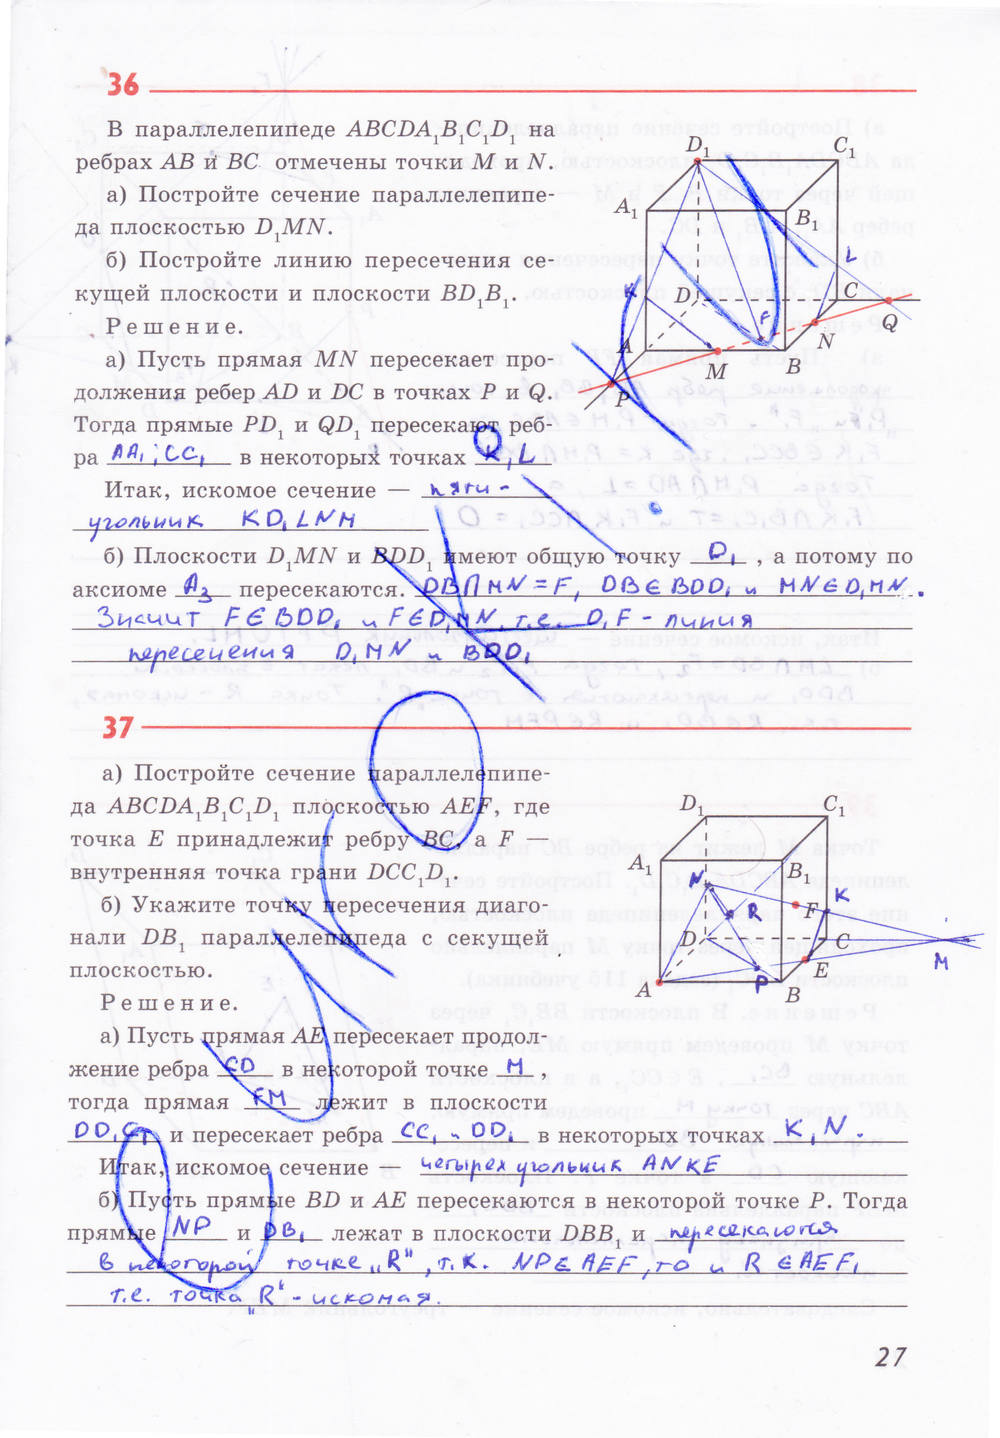 36
В параллелепипеде ABCDA₁B₁C₁D₁ на
ребрах AB и BC отмечены точки M и N.
а) Постройте сечение параллелепипе-
да плоскостью D₁MN.
б) Постройте линию пересечения се-
кущей плоскости и плоскости BD₁B₁.
Решение.
а) Пусть прямая MN пересекает про-
должения ребер AD и DC в точках P и Q.
Тогда прямые PD₁ и QD₁ пересекают реб-
ра AA₁; CC₁ в некоторых точках K, L
Итак, искомое сечение — пяти-
угольник KD₁LNM
б) Плоскости D₁MN и BDD₁ имеют общую точку D₁, а потому по
аксиоме А₃ пересекаются. DB∩MN=F, DB∈BDD₁ и MN∈D₁MN.
Значит F∈BDD₁ и F∈D₁MN, т.е. D₁F - линия
пересечения D₁MN и BDD₁
D₁
C₁
A₁
B₁
L
K
D
C
F
Q
A
N
M
B
P
37
а) Постройте сечение параллелепипе-
да ABCDA₁B₁C₁D₁ плоскостью AEF, где
точка E принадлежит ребру BC, а F —
внутренняя точка грани DCC₁D₁.
б) Укажите точку пересечения диаго-
нали DB₁ параллелепипеда с секущей
плоскостью.
Решение.
а) Пусть прямая AE пересекает продол-
жение ребра CD в некоторой точке M,
тогда прямая FM лежит в плоскости
DD₁C₁ и пересекает ребра CC₁ и DD₁ в некоторых точках K, N.
Итак, искомое сечение — четырехугольник ANKE
б) Пусть прямые BD и AE пересекаются в некоторой точке P. Тогда
прямые NP и DB₁ лежат в плоскости DBB₁ и пересекаются
в некоторой точке „R", т.к. NP∈AEF, то и R∈AEF,
т.е. точка „R" - искомая.
D₁
C₁
A₁
B₁
N
K
R
F
D
C
M
E
P
A
B
27